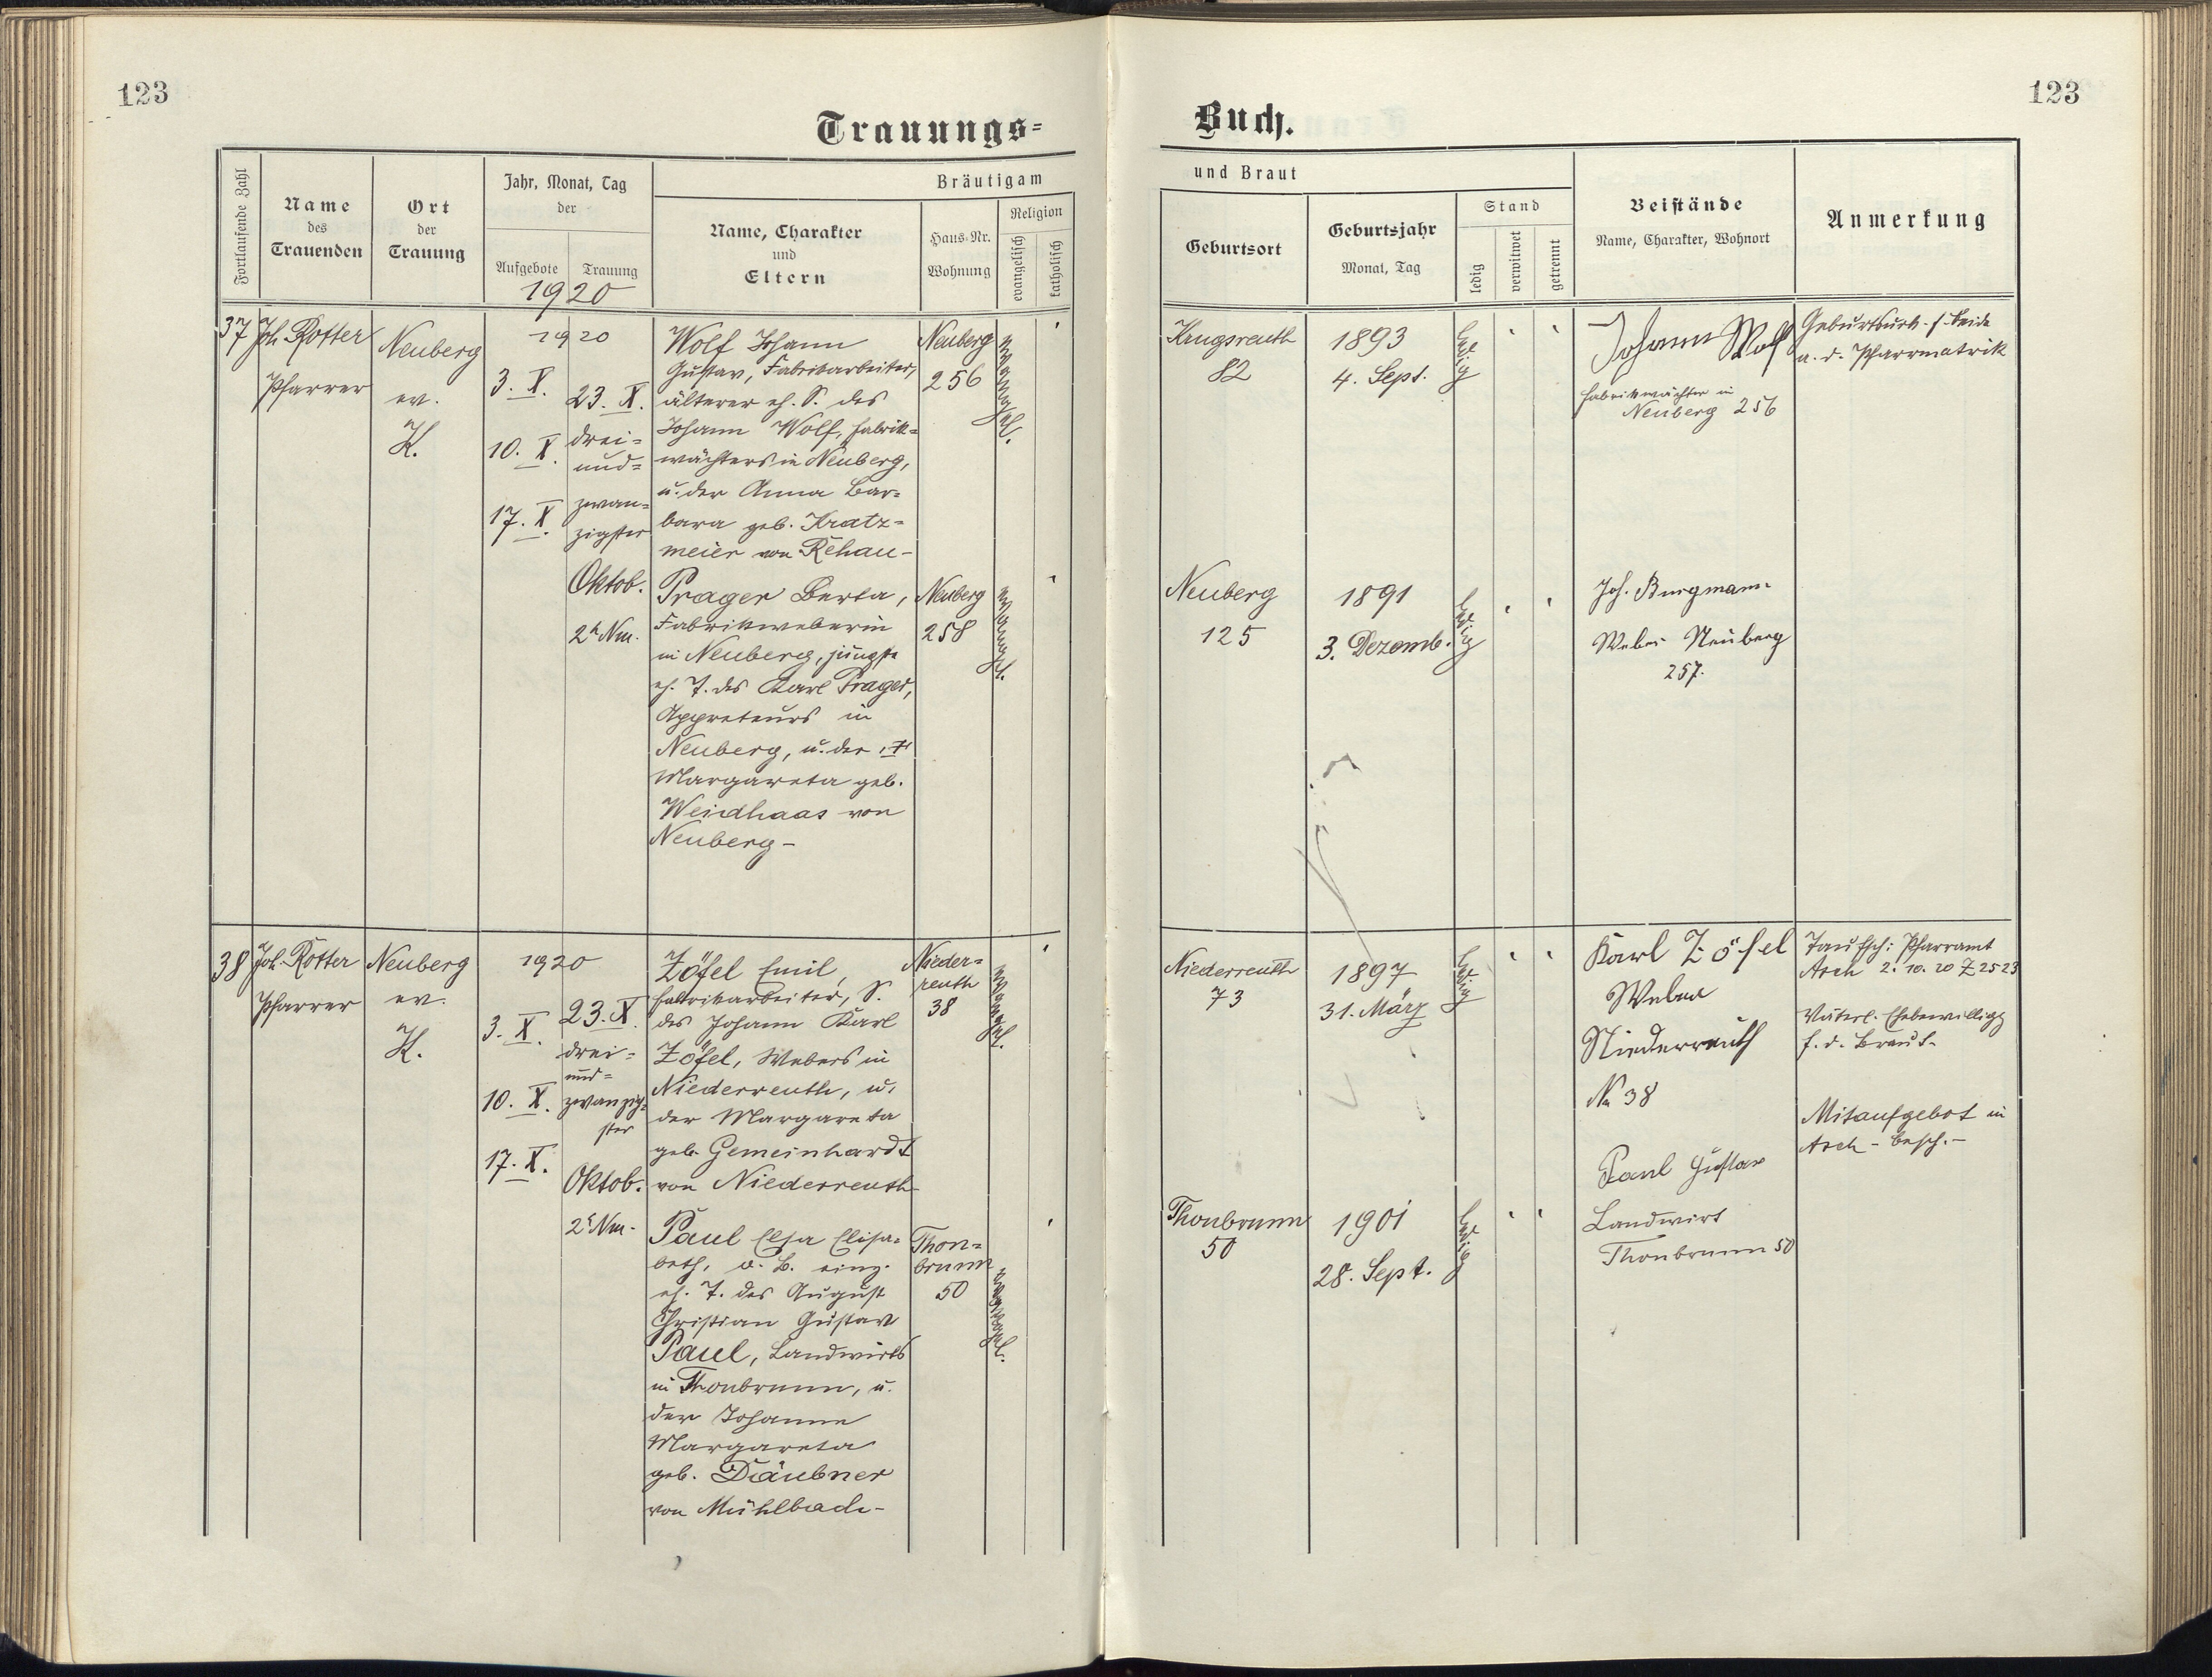 123
Trauungs=
Fortlaufende Zahl
Name
des
Trauenden
Ort
der
Trauung
Jahr, Monat, Tag
der
Aufgebote
Trauung
1920
Bräutigam
Name, Charakter
und
Eltern
Haus-Nr.
Wohnung
Religion
evangelisch
katholisch
37
Joh. Rotter
Pfarrer
Neuberg
ev.
K.
1920
3. X.
10. X.
17. X.
23. X.
drei=
und=
zwan=
zigster
Oktob.
2h Nm.
Wolf Johann
Gustav, Fabrikarbeiter,
älterer eh. S. des
Johann Wolf, Fabrik=
wächters in Neuberg,
u. der Anna Bar=
bara geb. Kratz=
meier von Rehau-
Neuberg
256
evangel.
Prager Berta,
Fabrikweberin
in Neuberg, jüngste
eh. T. des Karl Prager,
Appreteurs in
Neuberg, u. der †
Margareta geb.
Weidhaas von
Neuberg-
Neuberg
258
evangel.
38
Joh. Rotter
Pfarrer
Neuberg
ev.
K.
1920
3. X.
10. X.
17. X.
23. X.
drei=
und=
zwanzig=
ster
Oktob.
2h Nm.
Zöfel Emil,
Fabrikarbeiter, S.
des Johann Karl
Zöfel, Webers in
Niederreuth, u.
der Margareta
geb. Gemeinhardt
von Niederreuth
Nieder=
reuth
38
evangel.
Paul Elsa Elisa=
beth, o. B. einz.
eh. T. des August
Christian Gustav
Paul, Landwirts
in Thonbrunn, u.
der Johanne
Margareta
geb. Däubner
von Mühlbach-
Thon=
brunn
50
evangel.
123
Buch.
und Braut
Geburtsort
Geburtsjahr
Monat, Tag
Stand
ledig
verwitwet
getrennt
Beistände
Name, Charakter, Wohnort
Anmerkung
Krugsreuth
82
1893
4. Sept.
ledig
Johann Wolf
Fabrikwächter in
Neuberg 256
Geburtsurk. f. beide
a. d. Pfarrmatrik
Neuberg
125
1891
3. Dezemb.
ledig
Joh. Burgmann
Weber Neuberg
257.
Niederreuth
73
1897
31. März
ledig
Karl Zöfel
Weber
Niederreuth
No 38
Taufsch: Pfarramt
Asch 2. 10. 20 Z 2523
Väterl. Ehebewilligg
f. d. Braut-
Mitaufgebot in
Asch - besch.-
Thonbrunn
50
1901
28. Sept.
ledig
Paul Gustav
Landwirt
Thonbrunn 50